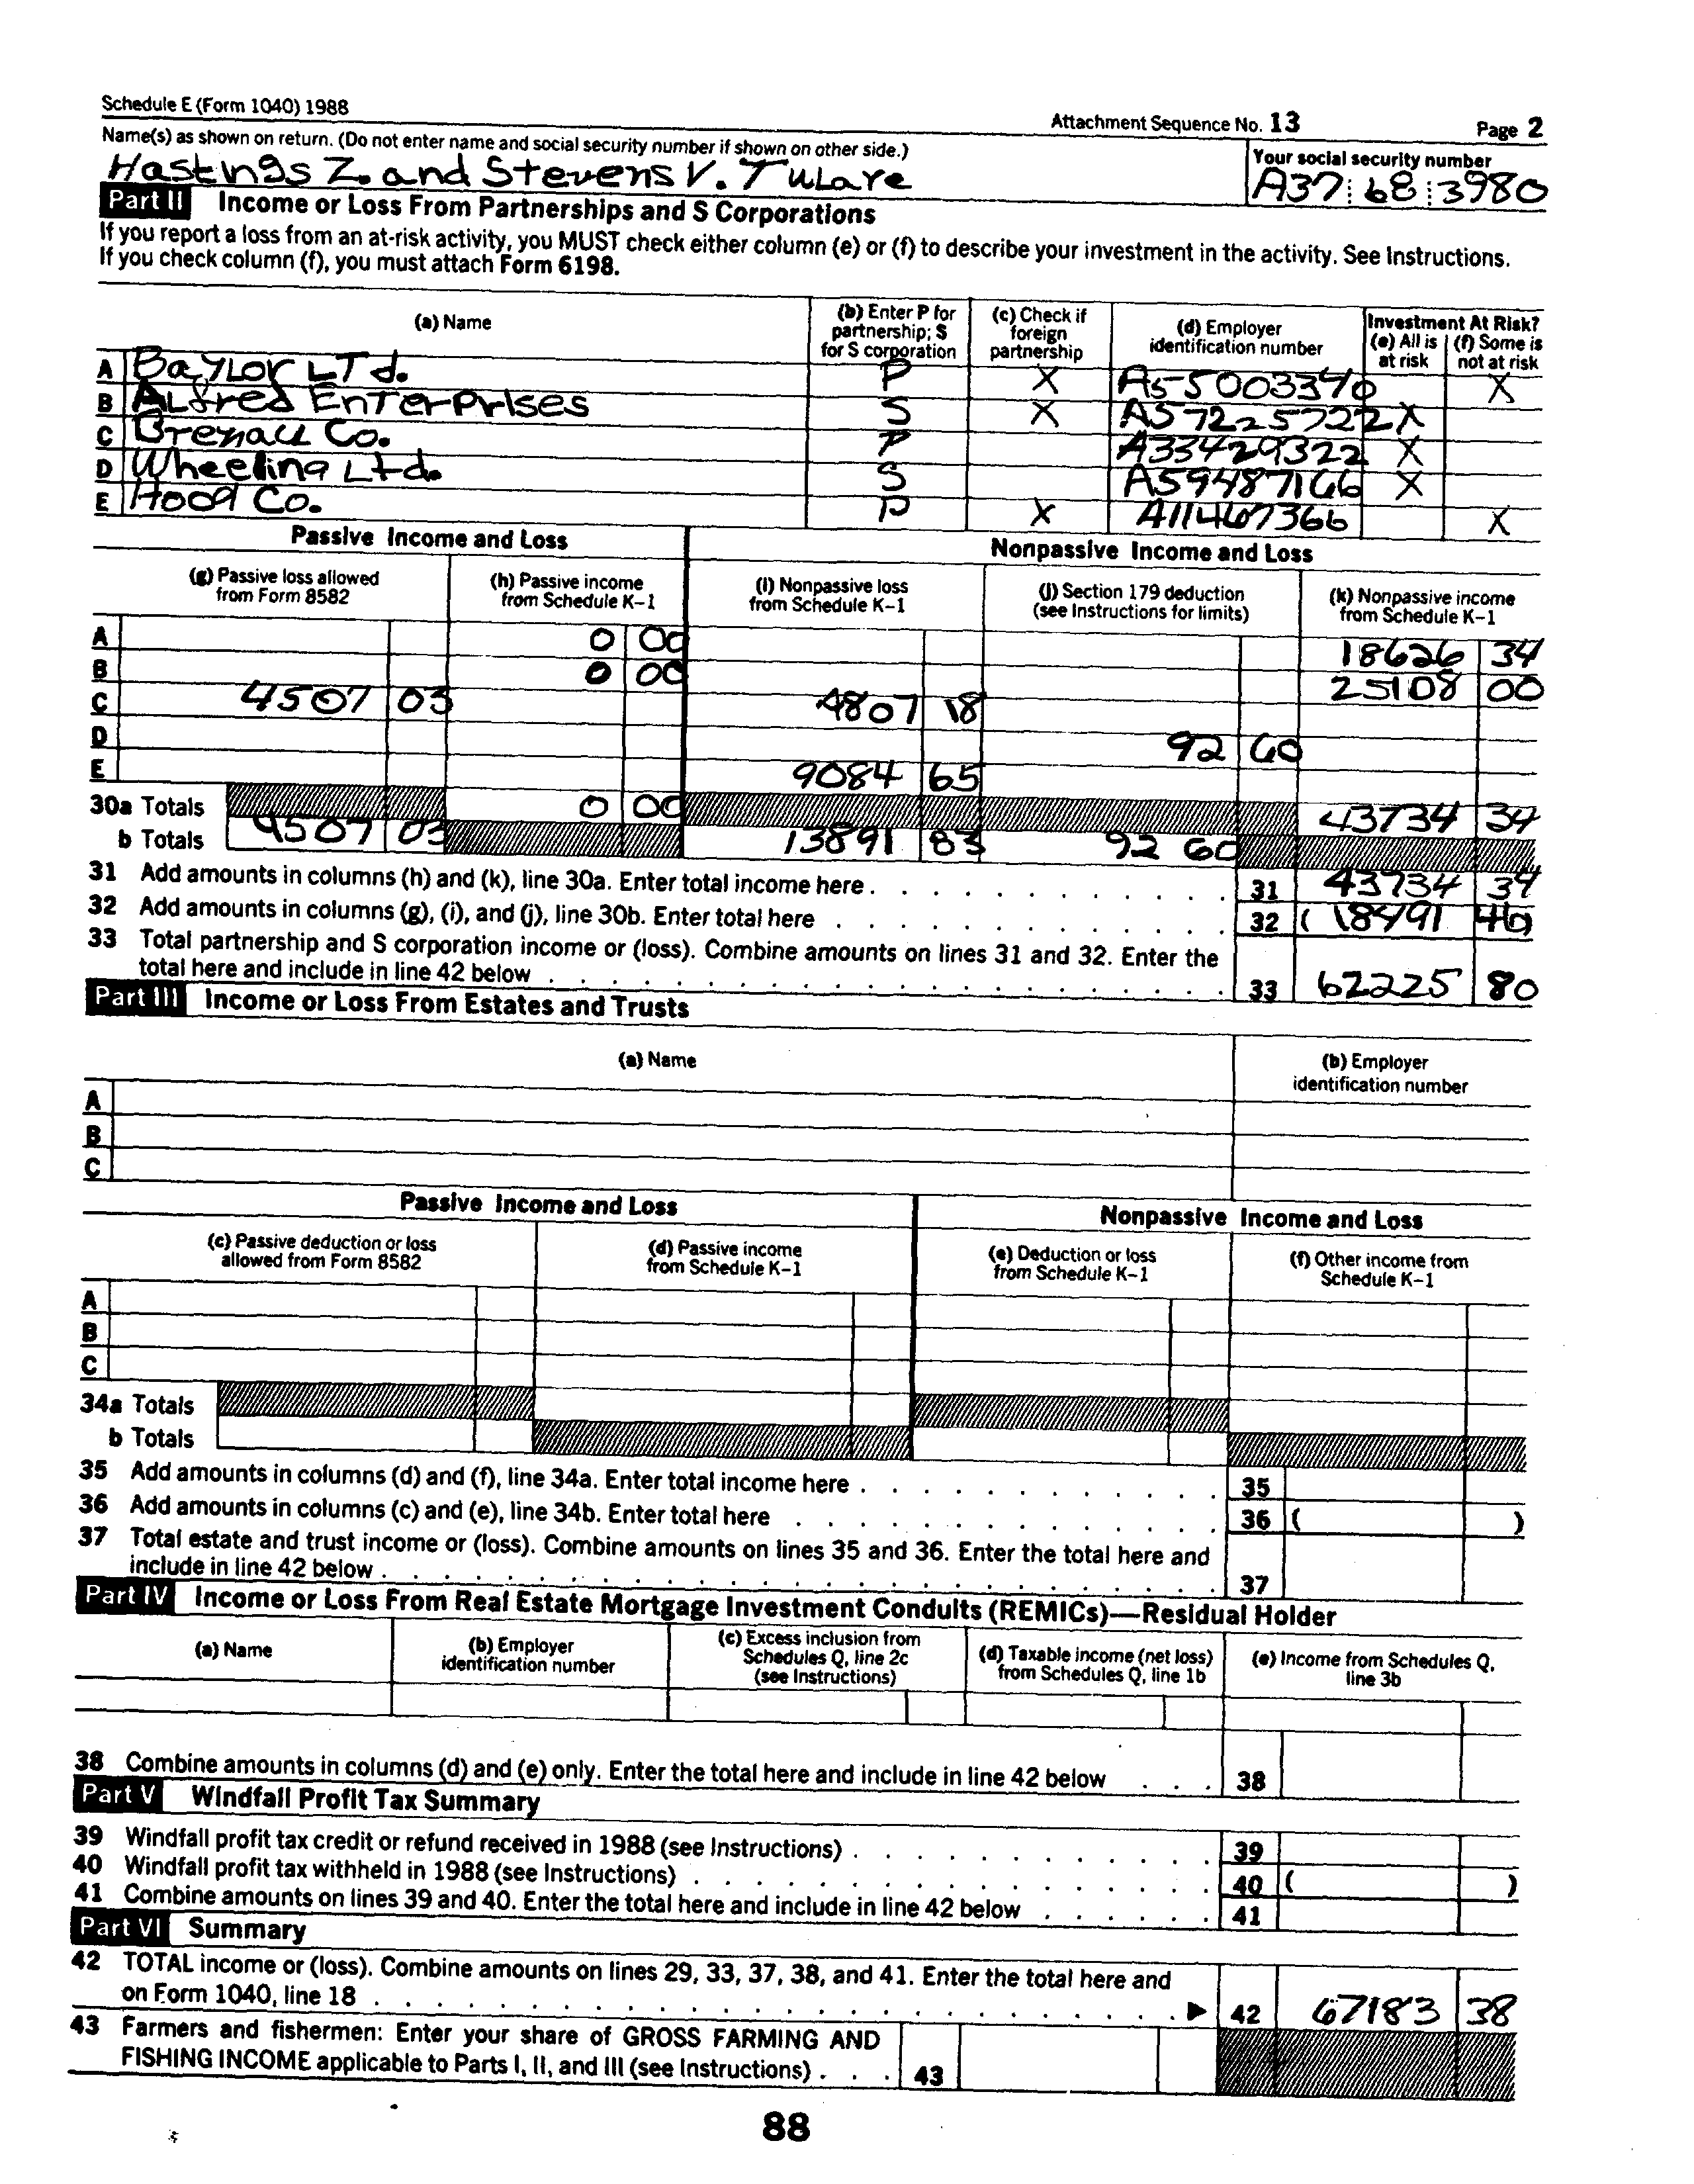 Schedule E (Form 1040) 1988
Attachment Sequence No. 13 Page 2
Name(s) as shown on return. (Do not enter name and social security number if shown on other side.)
Your social security number
Hastings Z. and Stevens V. Tulare
A37 68 3980
Part II Income or Loss From Partnerships and S Corporations
If you report a loss from an at-risk activity, you MUST check either column (e) or (f) to describe your investment in the activity. See Instructions.
If you check column (f), you must attach Form 6198.
(a) Name
(b) Enter P for partnership; S for S corporation
(c) Check if foreign partnership
(d) Employer identification number
Investment At Risk?
(e) All is at risk
(f) Some is not at risk
A Baylor LTd. P X A55003340 X
B Alfred Enterprises S X A57225722 X
C Brenau Co. P A33429322 X
D Wheeling Ltd. S A59487166 X
E Hood Co. P X A11467366 X
Passive Income and Loss
Nonpassive Income and Loss
(g) Passive loss allowed from Form 8582
(h) Passive income from Schedule K–1
(i) Nonpassive loss from Schedule K–1
(j) Section 179 deduction (see Instructions for limits)
(k) Nonpassive income from Schedule K–1
A 0 00 18626 34
B 0 00 25108 00
C 4507 03 4807 18
D 92 60
E 9084 65
30a Totals 0 00 43734 34
b Totals 4507 03 13891 83 92 60
31 Add amounts in columns (h) and (k), line 30a. Enter total income here . 31 43734 34
32 Add amounts in columns (g), (i), and (j), line 30b. Enter total here . 32 ( 18491 46)
33 Total partnership and S corporation income or (loss). Combine amounts on lines 31 and 32. Enter the
total here and include in line 42 below . 33 62225 80
Part III Income or Loss From Estates and Trusts
(a) Name
(b) Employer identification number
A
B
C
Passive Income and Loss
Nonpassive Income and Loss
(c) Passive deduction or loss allowed from Form 8582
(d) Passive income from Schedule K–1
(e) Deduction or loss from Schedule K–1
(f) Other income from Schedule K–1
A
B
C
34a Totals
b Totals
35 Add amounts in columns (d) and (f), line 34a. Enter total income here . 35
36 Add amounts in columns (c) and (e), line 34b. Enter total here . 36 ( )
37 Total estate and trust income or (loss). Combine amounts on lines 35 and 36. Enter the total here and
include in line 42 below . 37
Part IV Income or Loss From Real Estate Mortgage Investment Conduits (REMICs)—Residual Holder
(a) Name
(b) Employer identification number
(c) Excess inclusion from Schedules Q, line 2c (see Instructions)
(d) Taxable income (net loss) from Schedules Q, line 1b
(e) Income from Schedules Q, line 3b
38 Combine amounts in columns (d) and (e) only. Enter the total here and include in line 42 below . 38
Part V Windfall Profit Tax Summary
39 Windfall profit tax credit or refund received in 1988 (see Instructions) . 39
40 Windfall profit tax withheld in 1988 (see Instructions) . 40 ( )
41 Combine amounts on lines 39 and 40. Enter the total here and include in line 42 below . 41
Part VI Summary
42 TOTAL income or (loss). Combine amounts on lines 29, 33, 37, 38, and 41. Enter the total here and
on Form 1040, line 18 . ▶ 42 67183 38
43 Farmers and fishermen: Enter your share of GROSS FARMING AND
FISHING INCOME applicable to Parts I, II, and III (see Instructions) . 43
88